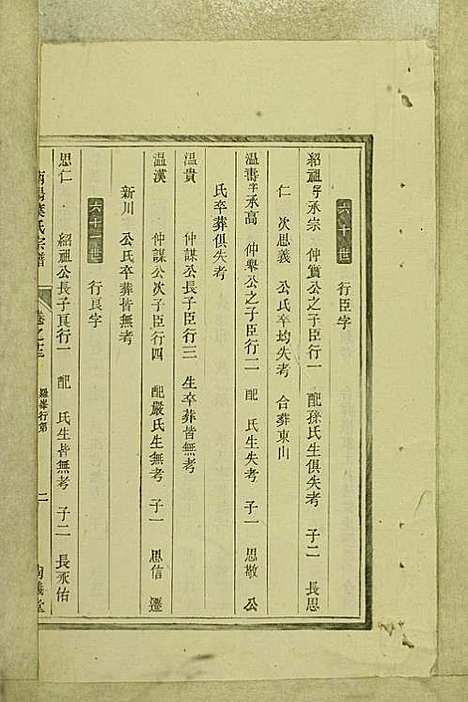 六十世 行臣字
紹祖 字承宗 仲實公之子臣行一 配孫氏生俱失考 子二 長思
仁 次思義 公氏卒均失考 合葬東山
溫壽 字承高 仲舉公之子臣行二 配 氏生失考 子一 思敬 公
氏卒葬俱失考
溫貴 仲謀公長子臣行三 生卒葬皆無考
溫漢 仲謀公次子臣行四 配嚴氏生無考 子一 思信 遷
新川 公氏卒葬皆無考
六十一世 行良字
思仁 紹祖公長子良行一 配 氏生皆無考 子二 長永佑
南陽葉氏宗譜 卷之三 行第 二